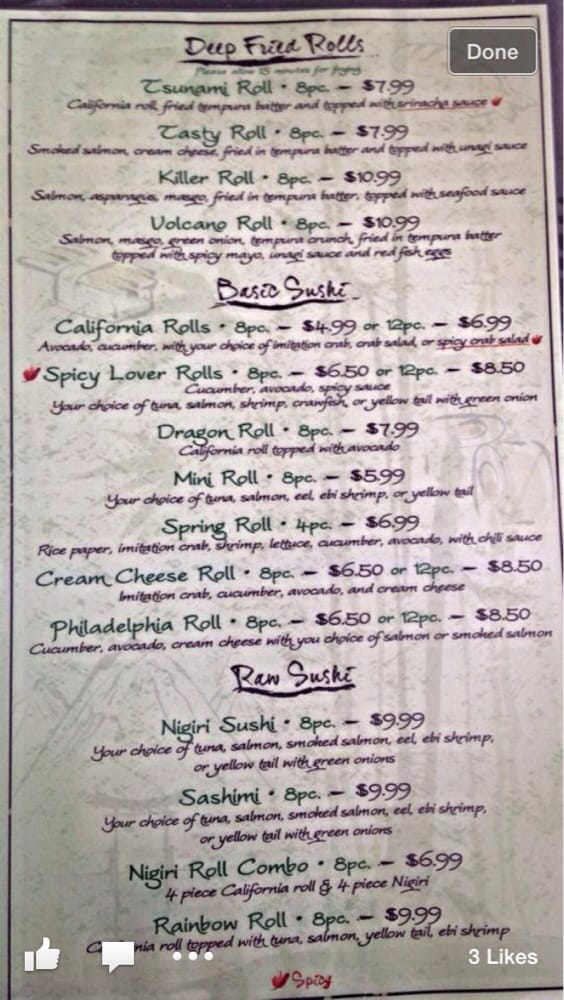 Deep Fried Rolls
Done
Please allow 15 minutes for frying
Tsunami Roll • 8pc. — $7.99
California roll, fried tempura batter and topped with sriracha sauce
Tasty Roll • 8pc. — $7.99
Smoked salmon, cream cheese, fried in tempura batter and topped with unagi sauce
Killer Roll • 8pc. — $10.99
Salmon, asparagus, masgo, fried in tempura batter, topped with seafood sauce
Volcano Roll • 8pc. — $10.99
Salmon, masgo, green onion, tempura crunch, fried in tempura batter
topped with spicy mayo, unagi sauce and red fish eggs
Basic Sushi
California Rolls • 8pc. — $4.99 or 12pc. — $6.99
Avocado, cucumber, with your choice of imitation crab, crab salad, or spicy crab salad
Spicy Lover Rolls • 8pc. — $6.50 or 12pc. — $8.50
Cucumber, avocado, spicy sauce
Your choice of tuna, salmon, shrimp, crawfish, or yellow tail with green onion
Dragon Roll • 8pc. — $7.99
California roll topped with avocado
Mini Roll • 8pc. — $5.99
Your choice of tuna, salmon, eel, ebi shrimp, or yellow tail
Spring Roll • 4pc. — $6.99
Rice paper, imitation crab, shrimp, lettuce, cucumber, avocado, with chili sauce
Cream Cheese Roll • 8pc. — $6.50 or 12pc. — $8.50
Imitation crab, cucumber, avocado, and cream cheese
Philadelphia Roll • 8pc. — $6.50 or 12pc. — $8.50
Cucumber, avocado, cream cheese with you choice of salmon or smoked salmon
Raw Sushi
Nigiri Sushi • 8pc. — $9.99
Your choice of tuna, salmon, smoked salmon, eel, ebi shrimp,
or yellow tail with green onions
Sashimi • 8pc. — $9.99
Your choice of tuna, salmon, smoked salmon, eel, ebi shrimp,
or yellow tail with green onions
Nigiri Roll Combo • 8pc. — $6.99
4 piece California roll & 4 piece Nigiri
Rainbow Roll • 8pc. — $9.99
roll topped with tuna, salmon, yellow tail, ebi shrimp
3 Likes
Spicy